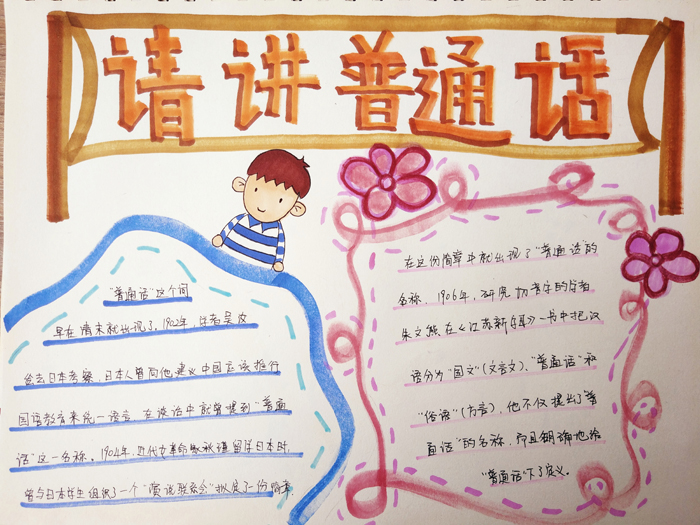 请讲普通话
"普通话"这个词
早在清末就出现了，1902年，学者吴汝
纶去日本考察，日本人曾向他建议中国应该推行
国语教育来统一语言，在谈话中就曾提到"普通
话"这一名称。1904年，近代女革命家秋瑾留学日本时，
曾与日本学生组织了一个"演说联系会"拟定了一份简章，
在这份简章中就出现了"普通话"的
名称，1906年，研究切音字的学者
朱文熊在《江苏新字母》一书中把汉
语分为"国文"（文言文）、"普通话"和
"俗语"（方言），他不仅提出了"普
通话"的名称，而且明确地给
"普通话"下了定义。